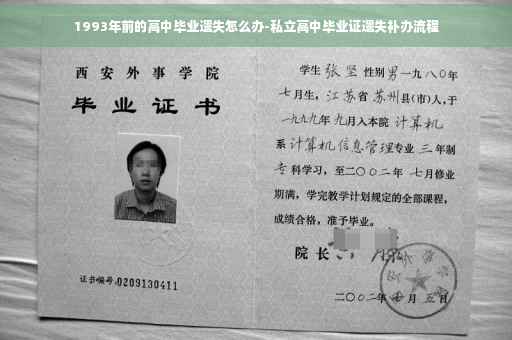 1993年前的高中毕业遗失怎么办-私立高中毕业证遗失补办流程
西安外事学院
毕业证书
证书编号:0209130411
学生 张坚 性别男 一九八〇年
七月生, 江苏省 苏州县(市)人,于
一九九九年 九月入本院 计算机
系 计算机信息管理专业 三 年制
专科学习, 至二〇〇二年 七月修业
期满, 学完教学计划规定的全部课程,
成绩合格, 准予毕业。
院 长
二〇〇二年 月 五日